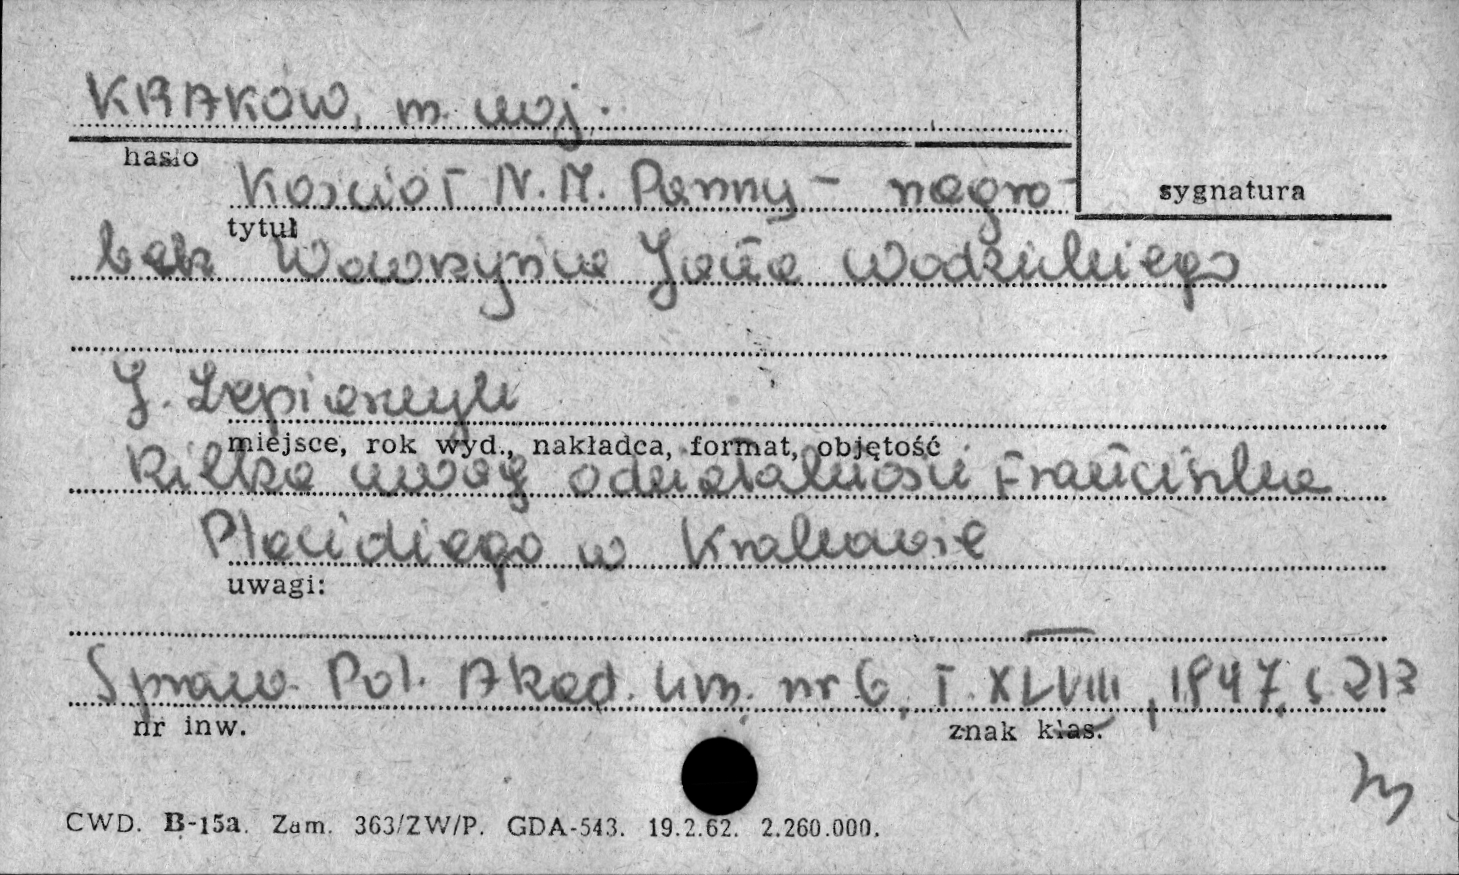 KRAKÓW, m. woj.
hasło
Kościół N. M. Panny – nagro-
sygnatura
tytuł
bek Wawrzyńca Jana Wodzickiego
J. Lepiarczyk
miejsce, rok wyd., nakładca, format, objętość
Kilka uwag o działalności Franciszka
Placidiego w Krakowie
uwagi:
Spraw. Pol. Akad. Um. nr 6, T. XLVIII, 1947, s. 213
nr inw.
znak klas.
CWD. B-15a. Zam. 363/ZW/P. GDA-543. 19.2.62. 2.260.000.